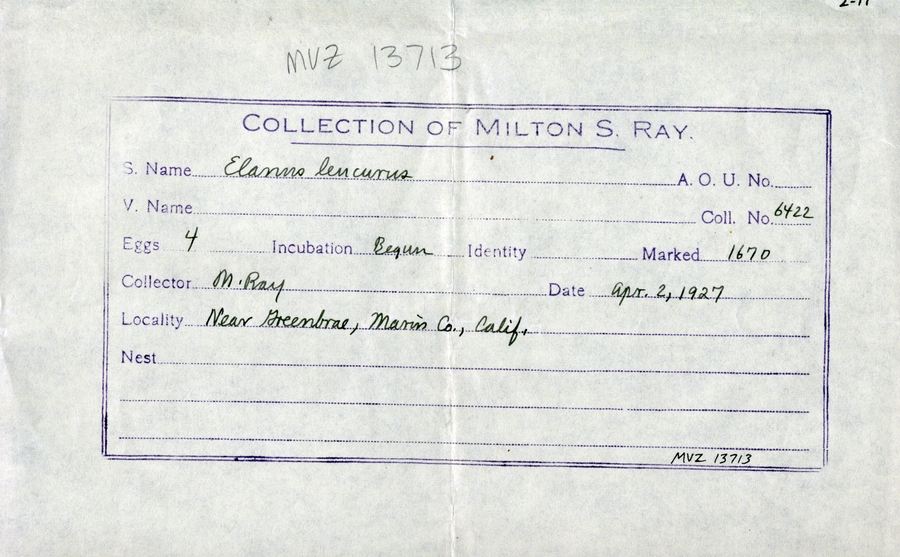 MVZ 13713
COLLECTION OF MILTON S. RAY.
S. Name Elanus leucurus A. O. U. No.
V. Name Coll. No. 6422
Eggs 4 Incubation Begun Identity Marked 1670
Collector M. Ray Date Apr. 2, 1927
Locality Near Greenbrae, Marin Co., Calif.
Nest
MVZ 13713